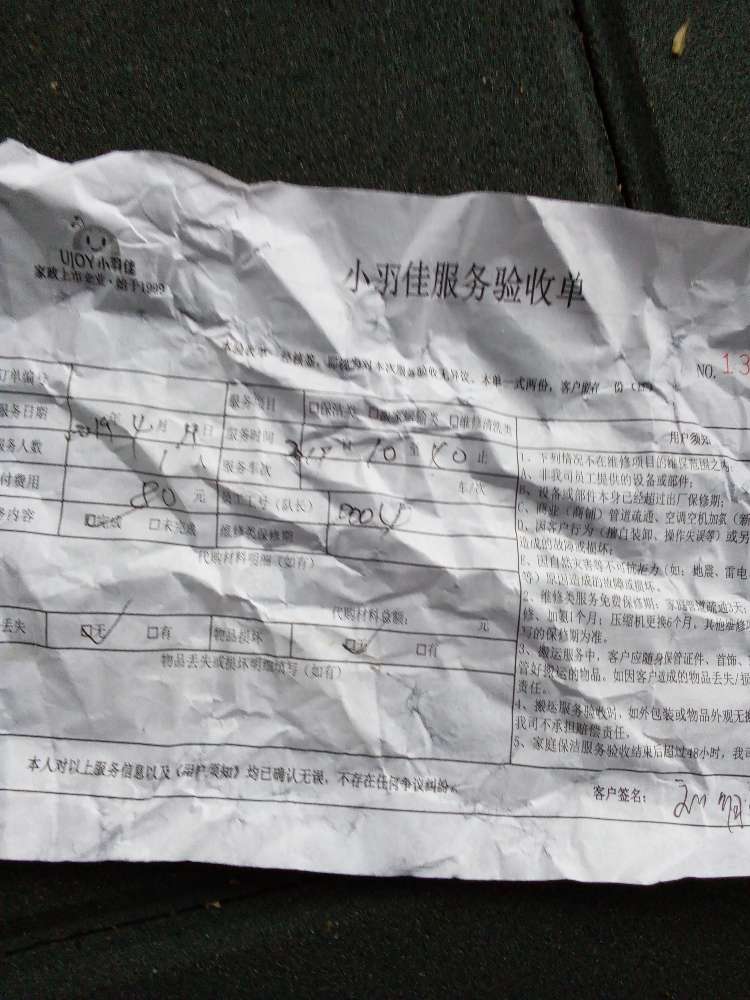 UJOY 小羽佳
家政上市企业·始于1999
小羽佳服务验收单
NO. 13
订单编号
服务项目 □保洁类 □搬家运输类 □维修清洗类
服务日期 2019年 4月 日 服务时间 10 至 止
务人数 1 人 服务车次 车/次
付费用 80 元 员工工号(队长) 0004
务内容 ☑完成 □未完成 维修类保修期
代购材料明细(如有)
代购材料总额: 元
丢失 ☑无 □有 物品损坏 ☑无 □有
物品丢失或损坏明细填写(如有)
本人对以上服务信息以及《用户须知》均已确认无误,不存在任何争议纠纷。
用户须知
1、下列情况不在维修项目的维保范围之内:
A、非我司员工提供的设备或部件;
B、设备或部件本身已经超过出厂保修期;
C、商业(商铺)管道疏通、空调空机加氨(氟
D、因客户行为(擅自装卸、操作失误等)或另
造成的故障或损坏;
E、因自然灾害等不可抗拒力(如:地震、雷电
等)原因造成的故障或损坏。
2、维修类服务免费保修期:家庭管道疏通3天、
修、加氨1个月;压缩机更换6个月,其他维修
写的保修期为准。
3、搬运服务中,客户应随身保管证件、首饰、
管好搬运的物品,如因客户造成的物品丢失/损
责任。
4、搬运服务验收时,如外包装或物品外观无
我司不承担赔偿责任。
5、家庭保洁服务验收结束后超过48小时,我司
客户签名: